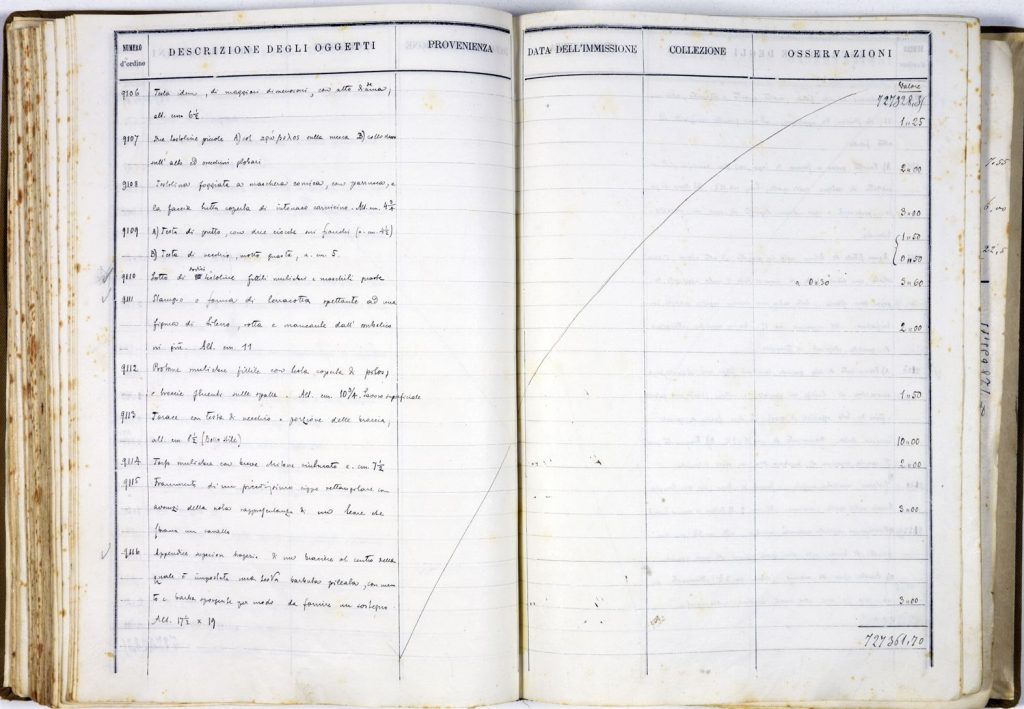 NUMERO d'ordine DESCRIZIONE DEGLI OGGETTI PROVENIENZA DATA DELL'IMMISSIONE COLLEZIONE OSSERVAZIONI
Valore
727328,31
9106 Testa idem, di maggiori dimensioni, con alto
alt. cm 6½ 1"25
9107 Due testoline piccole A) col sulla B) collo
sull' alto ed orecchini globari 2"00
9108 Testolina foggiata a maschera comica, con parrucca, e
la faccia tutta coperta di intonaco carnicino. Alt. cm. 4¾ 3"00
9109 A) Testa di putto, con due ciocche sui fianchi (a. cm. 4½) 1"50
B) Testa di vecchio, molto guasta, a. cm. 5. 0"50
9110 Lotto di testoline fittili muliebri e maschili guaste a 0"30 3"60
9111 Stampo o forma di terracotta spettante ad una
figura di Sileno, rotta e mancante dall' ombelico
in giù. Alt. cm. 11 2"00
9112 Protome muliebre fittile con testa coperta di polos,
e treccie fluenti sulle spalle. Alt. cm. 10¾. Lavoro superficiale 1"50
9113 Torace con testa di vecchio e porzione delle braccia,
alt. cm 8½ (Buono stile) 10"00
9114 Torso muliebre con breve chitone a. cm 7½ 2"00
9115 Frammento di un cippo rettangolare con
avanzi della nota rappresentanza di un leone che
sbrana un cavallo 3"00
9116 Appendice superiore di un braciere al centro della
quale è impostata una testa barbata pileata, con men-
to e barba sporgente per modo da fornire un sostegno.
Alt. 17½ x 19 3"00
727361,70
7.55
22,5